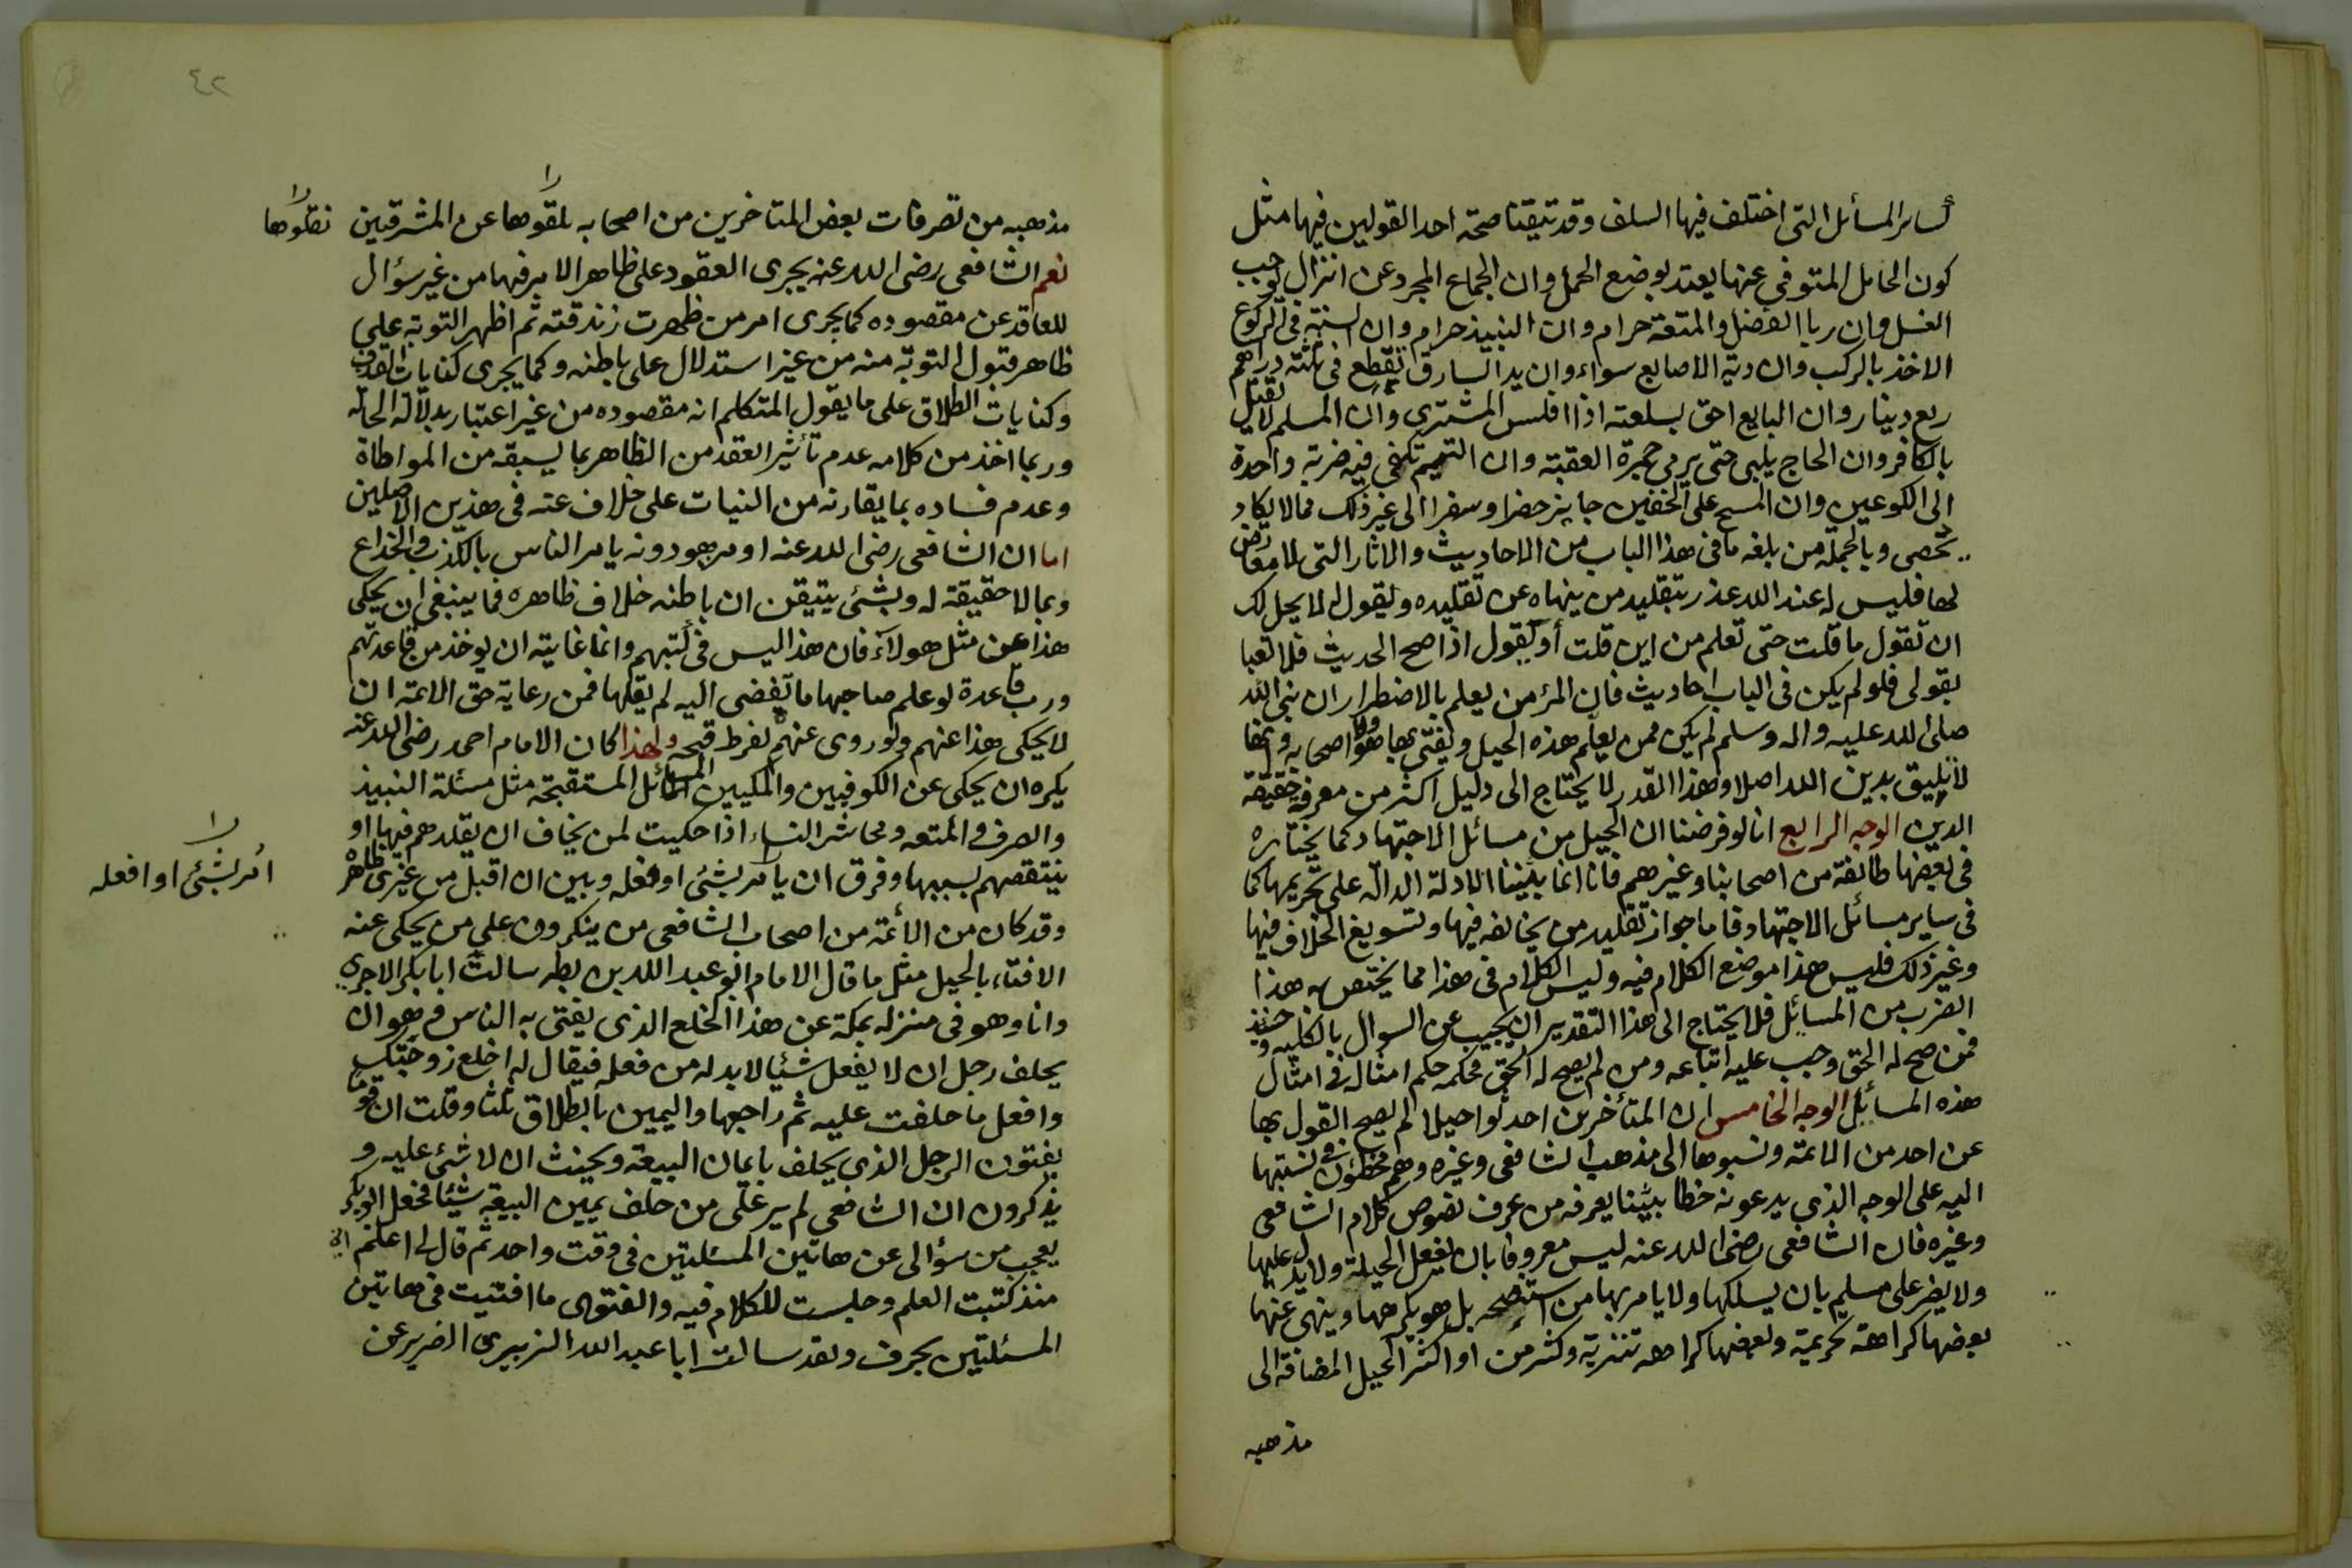 كساير المسائل التى اختلف فيها السلف وقد تيقنا صحة احد القولين فيها مثل
كون الحامل المتوفى عنها يعتد بوضع الحمل وان الجماع المجرد عن انزال يوجب
الغسل وان ربا الفضل والمتعة حرام وان النبيذ حرام وان السنة فى الركوع
الاخذ بالركب وان دية الاصابع سواء وان يد السارق تقطع فى ثلثة دراهم
ربع دينار وان البايع احق بسلعته اذا افلس المشترى وان المسلم لا يقتل
بالكافر وان الحاج يلبى حتى يرمى جمرة العقبة وان التيمم تكفى فيه ضربة واحدة
الى الكوعين وان المسح على الخفين جايز حضرا وسفرا الى غير ذلك مما لا يكاد
يحصى وبالجملة من بلغه ما فى هذا الباب من الاحاديث والاثار التى لا معارض
لها فليس له عند الله عذر بتقليد من ينهاه عن تقليده ويقول له لا يحل لك
ان تقول ما قلت حتى تعلم من اين قلت أو يقول اذا صح الحديث فلا تعبا
بقولى فلو لم يكن فى الباب احاديث فان المؤمن يعلم بالاضطرار ان نبى الله
صلى الله عليه واله وسلم لم يكن ممن يعلم هذه الحيل ويفتى بها هو ولا اصحابه وانها
لا يليق بدين الله اصلا وهذا القدر لا يحتاج الى دليل اكثر من معرفة حقيقة
الدين الوجه الرابع انا لو فرضنا ان الحيل من مسائل الاجتهاد كما يختاره
فى بعضها طائفة من اصحابنا وغيرهم فانا انما بيّنا الادلة الدالة على تحريمها كما
فى ساير مسائل الاجتهاد فاما جواز تقليد من يخالفه فيها وتسويغ الخلاف فيها
وغير ذلك فليس هذا موضع الكلام فيه وليس الكلام فى هذا مما يختص به هذا
الضرب من المسائل فلا يحتاج الى هذا التقدير ان يجيب عن السوال بالكلية وحينئذ
فمن صح له الحق وجب عليه اتباعه ومن لم يصح له الحق فحكمه حكم امثاله فى امثال
هذه المسائل الوجه الخامس ان المتأخرين احدثوا حيلا لم يصح القول بها
عن احد من الائمة ونسبوها الى مذهب الشافعى وغيره وهم مخطؤن فى نسبتها
اليه على الوجه الذى يدعونه خطا بيّنا يعرفه من عرف نصوص كلام الشافعى
وغيره فان الشافعى رضى الله عنه ليس معروفا بان يفعل الحيلة ولا يدل عليها
ولا يضر على مسلم بان يسلكها ولا يامر بها من استنصحه بل هو يكرهها وينهى عنها
بعضها كراهة تحريمة وبعضها كراهة تنزيه وكثير من او اكثر الحيل المضافة الى
مذهبه
٤٢
مذهبه من تصرفات بعض المتاخرين من اصحابه تلقوها عن المشرقين
نقلوها
نعم الشافعى رضى الله عنه يجرى العقود على ظاهر الامر فيها من غير سؤال
للعاقد عن مقصوده كما يجرى امر من ظهرت زندقته ثم اظهر التوبة على
ظاهر قبول التوبة منه من غير استدلال على باطنه وكما يجرى كنايات القذف
وكنايات الطلاق على ما يقول المتكلم انه مقصوده من غير اعتبار بدلالة الحالة
وربما اخذ من كلامه عدم تأثير العقد من الظاهر بما يسبقه من المواطاة
وعدم فساده بما يقارنه من النيات على خلاف عنه فى هذين الاصلين
اما ان الشافعى رضى الله عنه او من هو دونه يامر الناس بالكذب والخداع
وبما لا حقيقة له وبشئ يتيقن ان باطنه خلاف ظاهره فما ينبغى ان يحكى
هذا عن مثل هولاء فان هذا ليس فى كتبهم وانما غايته ان يوخذ من قاعدتهم
ورب قاعدة لو علم صاحبها ما تفضى اليه لم يقلها فمن رعاية حق الائمة ان
لا يحكى هذا عنهم ولو روى عنهم لفرط قبحه ولهذا كان الامام احمد رضى الله عنه
يكره ان يحكى عن الكوفيين والمكيين المسائل المستقبحة مثل مسئلة النبيذ
والصرف والمتعه ومحاشر النساء اذا حكيت لمن يخاف ان يقلدهم فيها او
ينتقصهم بسببها وفرق ان يأمر بشئ او فعله وبين ان اقبل من غيرى ظاهره
امر بشئ او افعله
وقد كان من الأئمة من اصحاب الشافعى من ينكرون على من يحكى عنه
الافتاء بالحيل مثل ما قال الامام ابو عبد الله بن بطه سالت ابا بكر الاجرى
وانا وهو فى منزله بمكة عن هذا الخلع الذى يفتى به الناس وهو ان
يحلف رجل ان لا يفعل شئيا لا بد له من فعله فيقال له اخلع زوجتك
وافعل ما حلفت عليه ثم راجعها واليمين بالطلاق ثلثا وقلت ان قوما
يفتون الرجل الذى يحلف بايمان البيعة ويحنث ان لا شئ عليه و
يذكرون ان الشافعى لم ير على من حلف يمين البيعة شيئا فجعل ابو بكر
يعجب من سؤالى عن هاتين المسئلتين فى وقت واحد ثم قال لى اعلم انى
منذ كتبت العلم وجلست للكلام فيه والفتوى ما افتيت فى هاتين
المسئلتين بحرف ولقد سالت ابا عبد الله الزبيرى الضرير عن